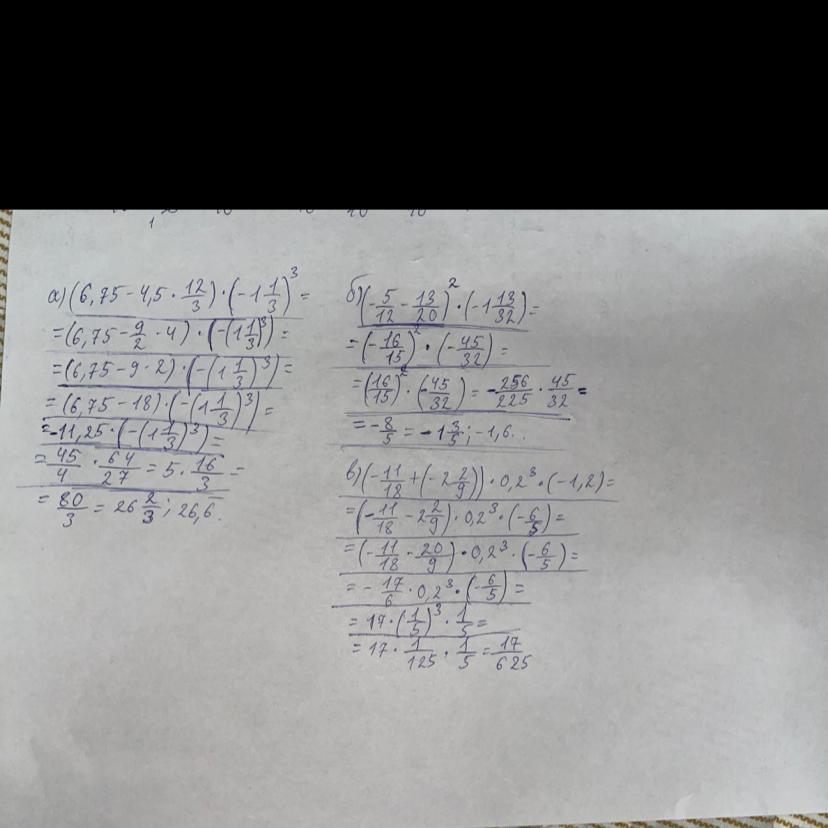 а) (6,75 - 4,5 · 12/3) · (-1 1/3)³ =
= (6,75 - 9/2 · 4) · (-(1 1/3)³) =
= (6,75 - 9 · 2) · (-(1 1/3)³) =
= (6,75 - 18) · (-(1 1/3)³) =
= -11,25 · (-(1 1/3)³) =
= 45/4 · 64/27 = 5 · 16/3 =
= 80/3 = 26 2/3; 26,6.
б) (-5/12 - 13/20)² · (-1 13/32) =
= (-16/15)² · (-45/32) =
= (16/15)² · (-45/32) = -256/225 · 45/32 =
= -8/5 = -1 3/5; -1,6..
в) (-11/18 + (-2 2/9)) · 0,2³ · (-1,2) =
= (-11/18 - 2 2/9) · 0,2³ · (-6/5) =
= (-11/18 - 20/9) · 0,2³ · (-6/5) =
= -17/6 · 0,2³ · (-6/5) =
= 17 · (1/5)³ · 1/5 =
= 17 · 1/125 · 1/5 = 17/625